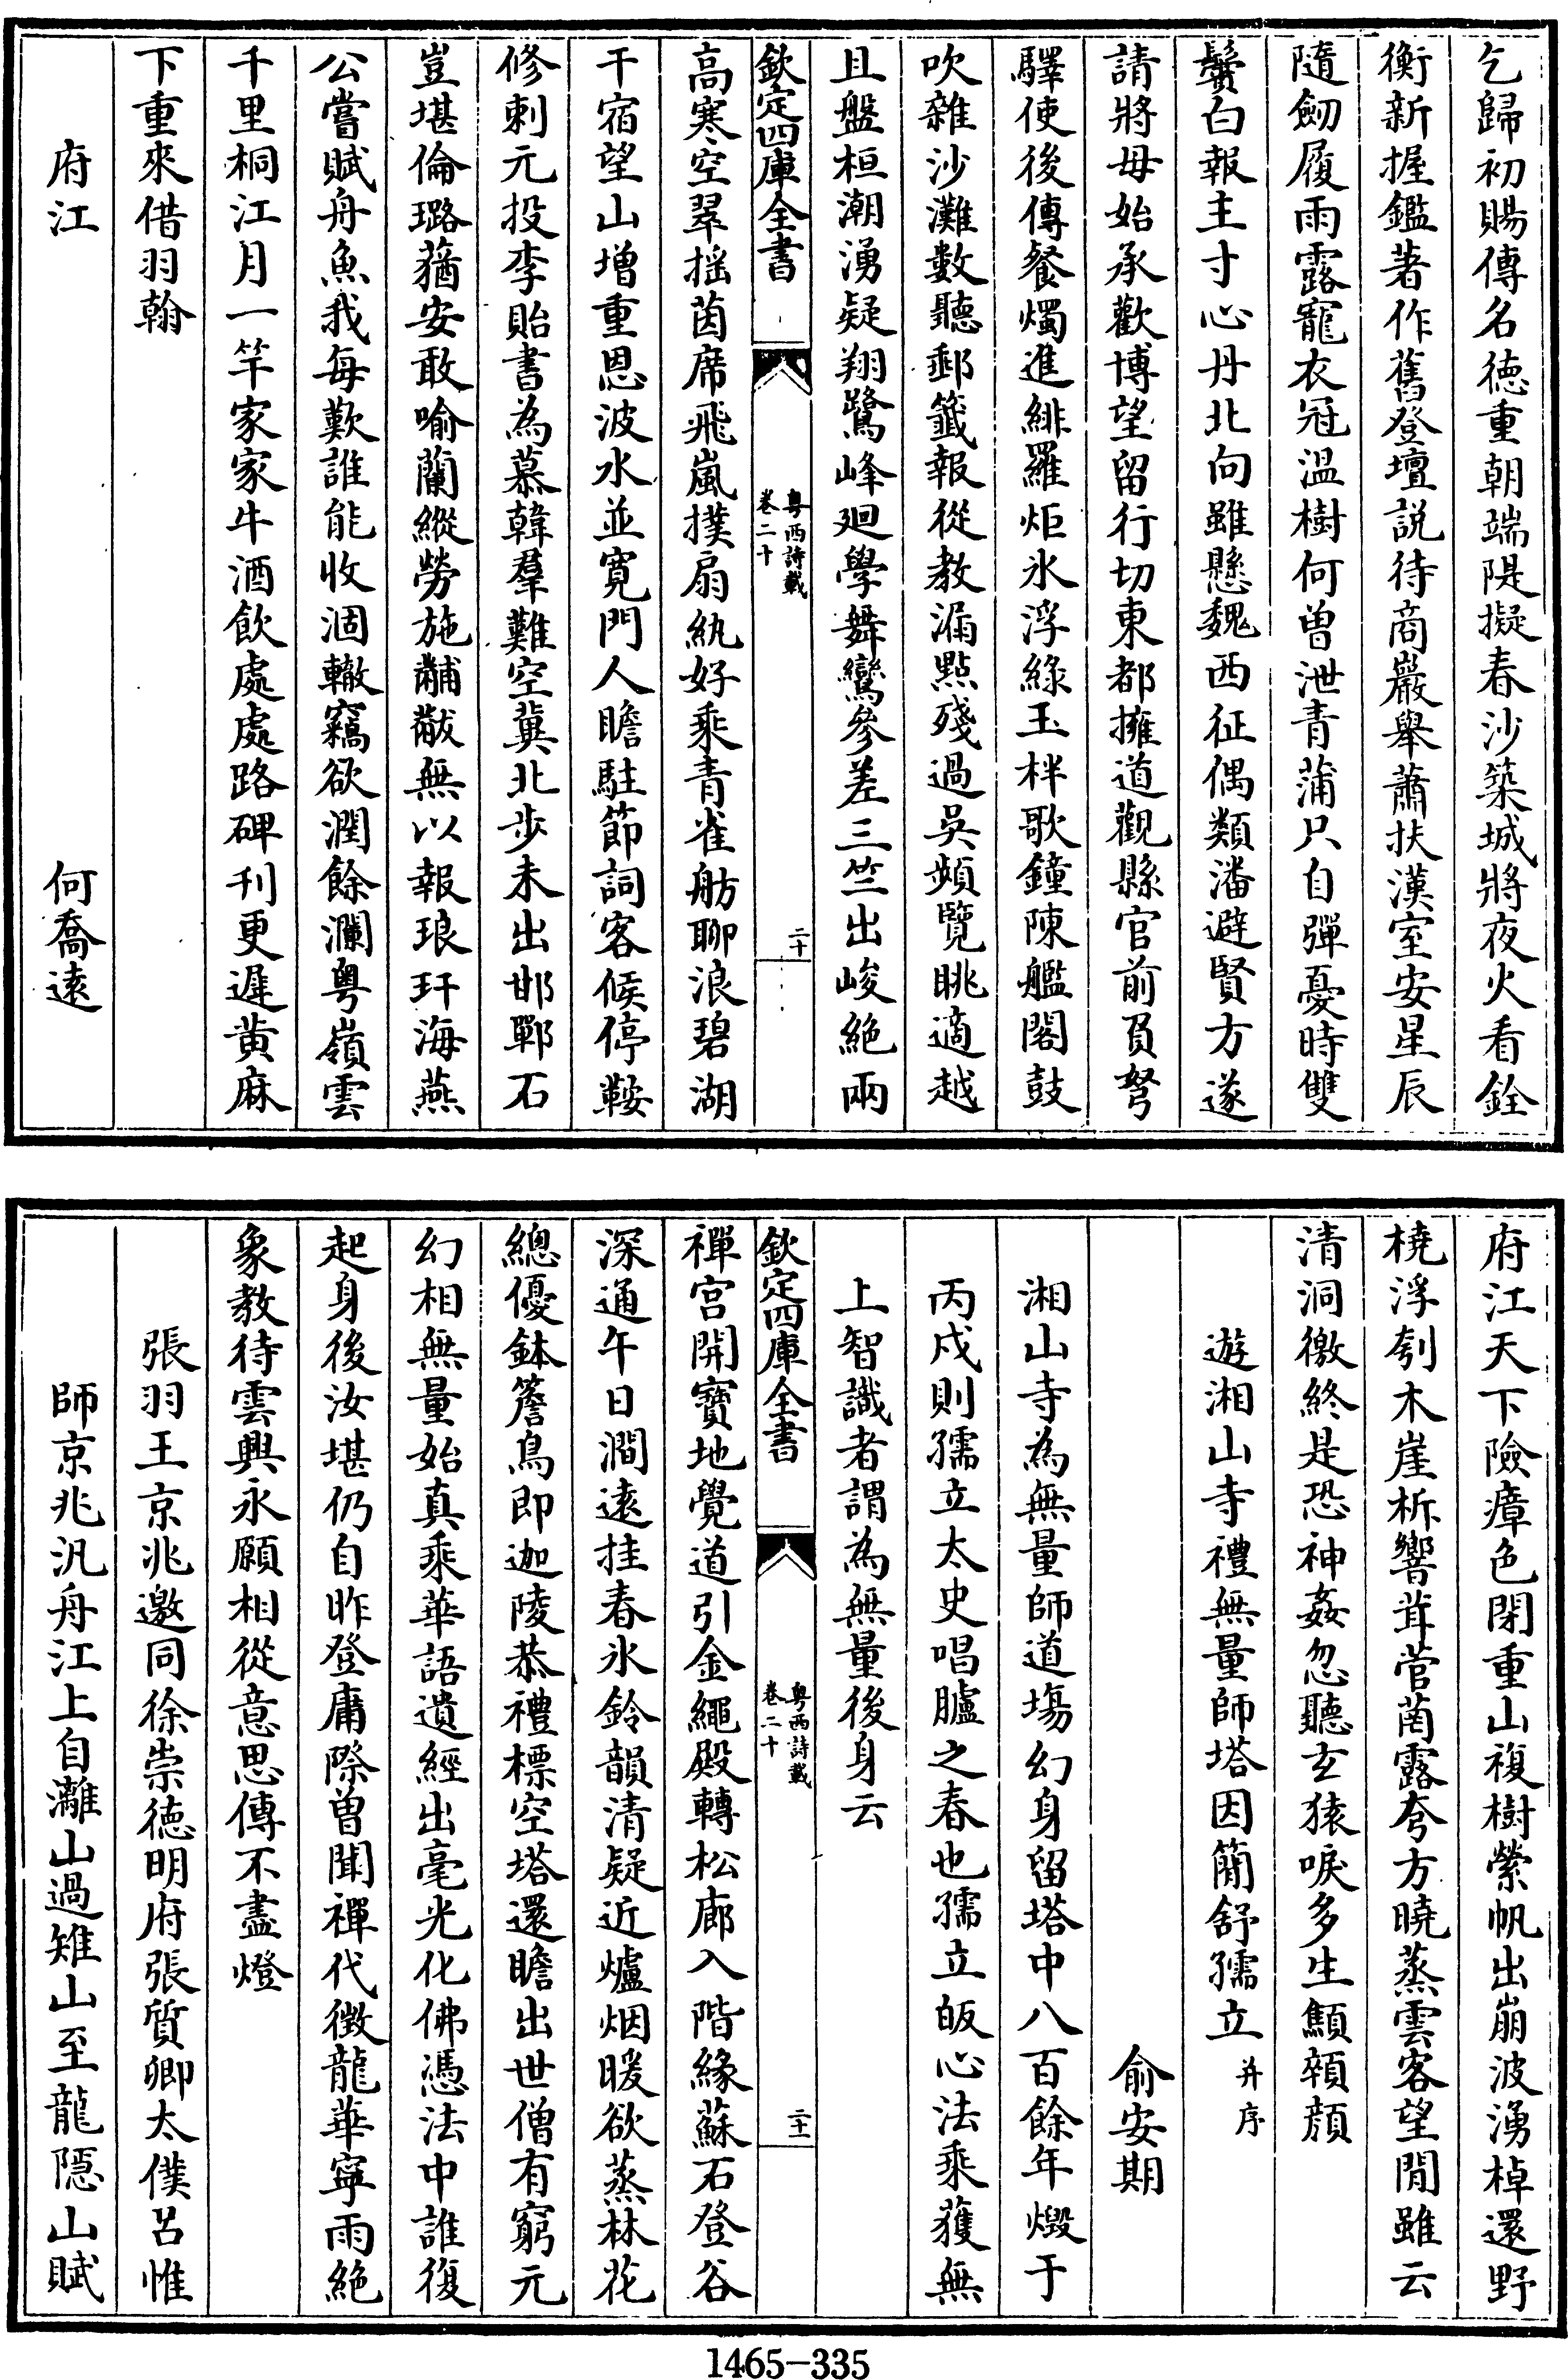 乞歸初賜傳名德重朝端隄擬春沙築城將夜火看銓
衡新握鑑著作舊登壇説待商巖舉蕭扶漢室安星辰
隨劒履雨露寵衣冠温樹何曽泄青蒲只自彈憂時雙
鬢白報主寸心丹北向雖懸魏西征偶類潘避賢方遂
請將母始承歡博望留行切東都擁道觀縣官前負弩
驛使後傳餐燭進緋羅炬氷浮緑玉柈歌鐘陳艦閣鼓
吹雜沙灘數聽郵籤報從教漏點殘過吳頻覽眺適越
且盤桓潮湧疑翔鷺峰廻學舞鸞參差三竺出峻絶兩
欽定四庫全書
粤西詩載
卷二十
二十
高寒空翠揺茵席飛嵐撲扇紈好乘青雀舫聊浪碧湖
干宿望山增重恩波水並寛門人瞻駐節詞客候停鞍
修刺元投李貽書為慕韓羣難空冀北步未出邯鄲石
豈堪倫璐蕕安敢喻蘭縱勞施黼黻無以報琅玕海燕
公嘗賦舟魚我每歎誰能收涸轍竊欲潤餘瀾粤嶺雲
千里桐江月一竿家家牛酒飲處處路碑刊更遲黄麻
下重來借羽翰
府江　何喬遠
府江天下險瘴色閉重山複樹縈帆出崩波湧棹還野
橈浮刳木崖柝響茸菅菌露夸方曉蒸雲客望閒雖云
清洞徼終是恐神姦忽聽玄猿唳多生顦顇顔
遊湘山寺禮無量師塔因簡舒孺立并序
俞安期
湘山寺為無量師道塲幻身留塔中八百餘年燬于
丙戍則孺立太史唱臚之春也孺立皈心法乘獲無
上智識者謂為無量後身云
欽定四庫全書
粤西詩載
卷二十
二十一
禪宫開寶地覺道引金繩殿轉松廊入階緣蘇石登谷
深通午日澗遠挂春氷鈴韻清疑近爐烟暖欲蒸林花
總優鉢簷鳥即迦陵恭禮標空塔還瞻出世僧有窮元
幻相無量始真乘華語遺經出毫光化佛憑法中誰復
起身後汝堪仍自昨登庸際曽聞禪代徴龍華寧雨絶
象教待雲興永願相從意思傳不盡燈
張羽王京兆邀同徐崇德明府張質卿太僕吕惟
師京兆汎舟江上自灕山過雉山至龍隱山賦
1465-335